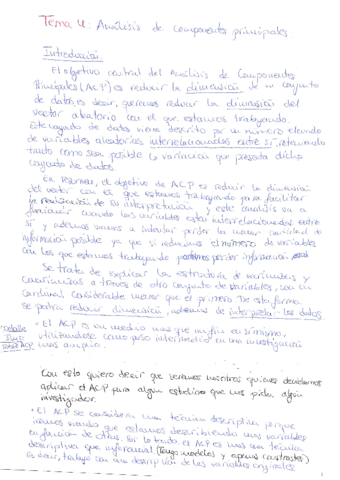 Tema 4: Análisis de componentes principales
Introducción
El objetivo central del Análisis de Componentes
Principales (ACP) es reducir la dimensión de un conjunto
de datos, es decir, queremos reducir la dimensión del
vector aleatorio con el que estamos trabajando.
Este conjunto de datos viene descrito por un número elevado
de variables aleatorias interrelacionadas entre sí, retenendo
tanto como sea posible la variación que presenta dicho
conjunto de datos.
En resumen, el objetivo de ACP es reducir la dimensión
del vector con el que estamos trabajando para facilitar
su interpretación y este análisis va a
funcionar cuando las variables están interrelacionadas entre
sí y además vamos a intentar perder la menor cantidad de
información posible ya que si reducimos el número de variables
con las que estamos trabajando podemos perder información
Se trata de explicar la estructura de varianzas y
covarianzas a través de otro conjunto de variables, con un
cardinal considerable menor que el primero. De esta forma
se podrá reducir dimensión, además de interpretar los datos.
• El ACP es un medio más que un fin en sí mismo,
utilizándose como paso intermedio en una investigación
más amplia.
Con esto quiero decir que seremos nosotros quienes decidamos
aplicar el ACP para algún estudio que nos pida algún
investigador.
• El ACP se considera una técnica descriptiva porque
vamos viendo que estamos describiendo unas variables
en función de otras. Por lo tanto, el ACP es más una técnica
descriptiva que inferencial (Tengo modelos y aplico contrastes)
Es decir, trabajo con una descripción de las variables originales